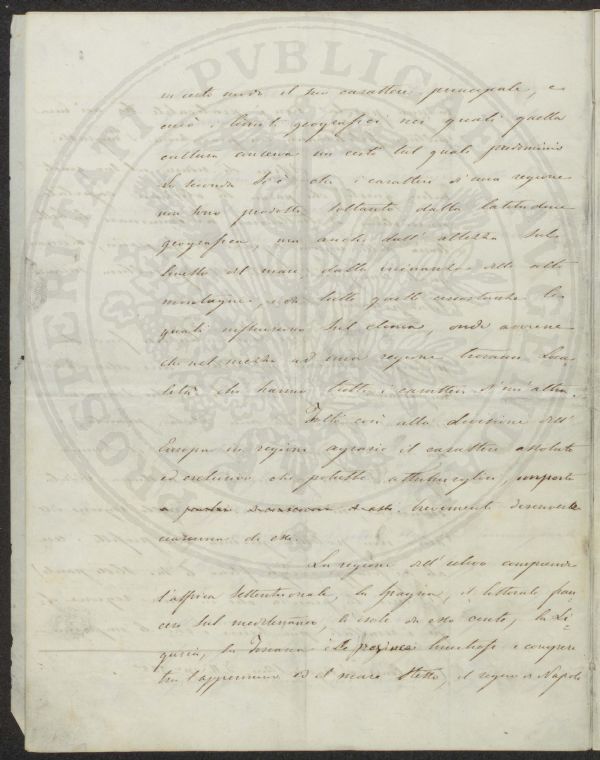 in certo modo il suo carattere principale, e
cioè i limiti geografici nei quali quella
cultura conserva un certo tal quale predominio
La seconda si è che i caratteri di una regione
non sono prodotti soltanto dalla latitudine
geografica, ma anche dall'altezza sul
livello del mare, dalla vicinanza delle alte
montagne, e da tutte quelle circostanze le
quali influiscono sul clima, onde avviene
che nel mezzo ad una regione trovansi Loca-
lità che hanno tutti i caratteri di un'altra.
Tolto così alla divisione dell'
Europa in regioni agrarie il carattere assoluto
ed esclusivo che potrebbe attribuirglisi,
brevemente descriverle
ciascuna di esse.
La regione dell'ulivo comprende
l'affrica settentrionale, la Spagna, il littorale fran-
cese sul mediterraneo, le isole da esso cinte, la Li-
guria, la Toscana e compresa
tra l'appennino ed il mare stesso, il regno di Napoli
PROSPERITATI PVBLICAE AVGENDAE